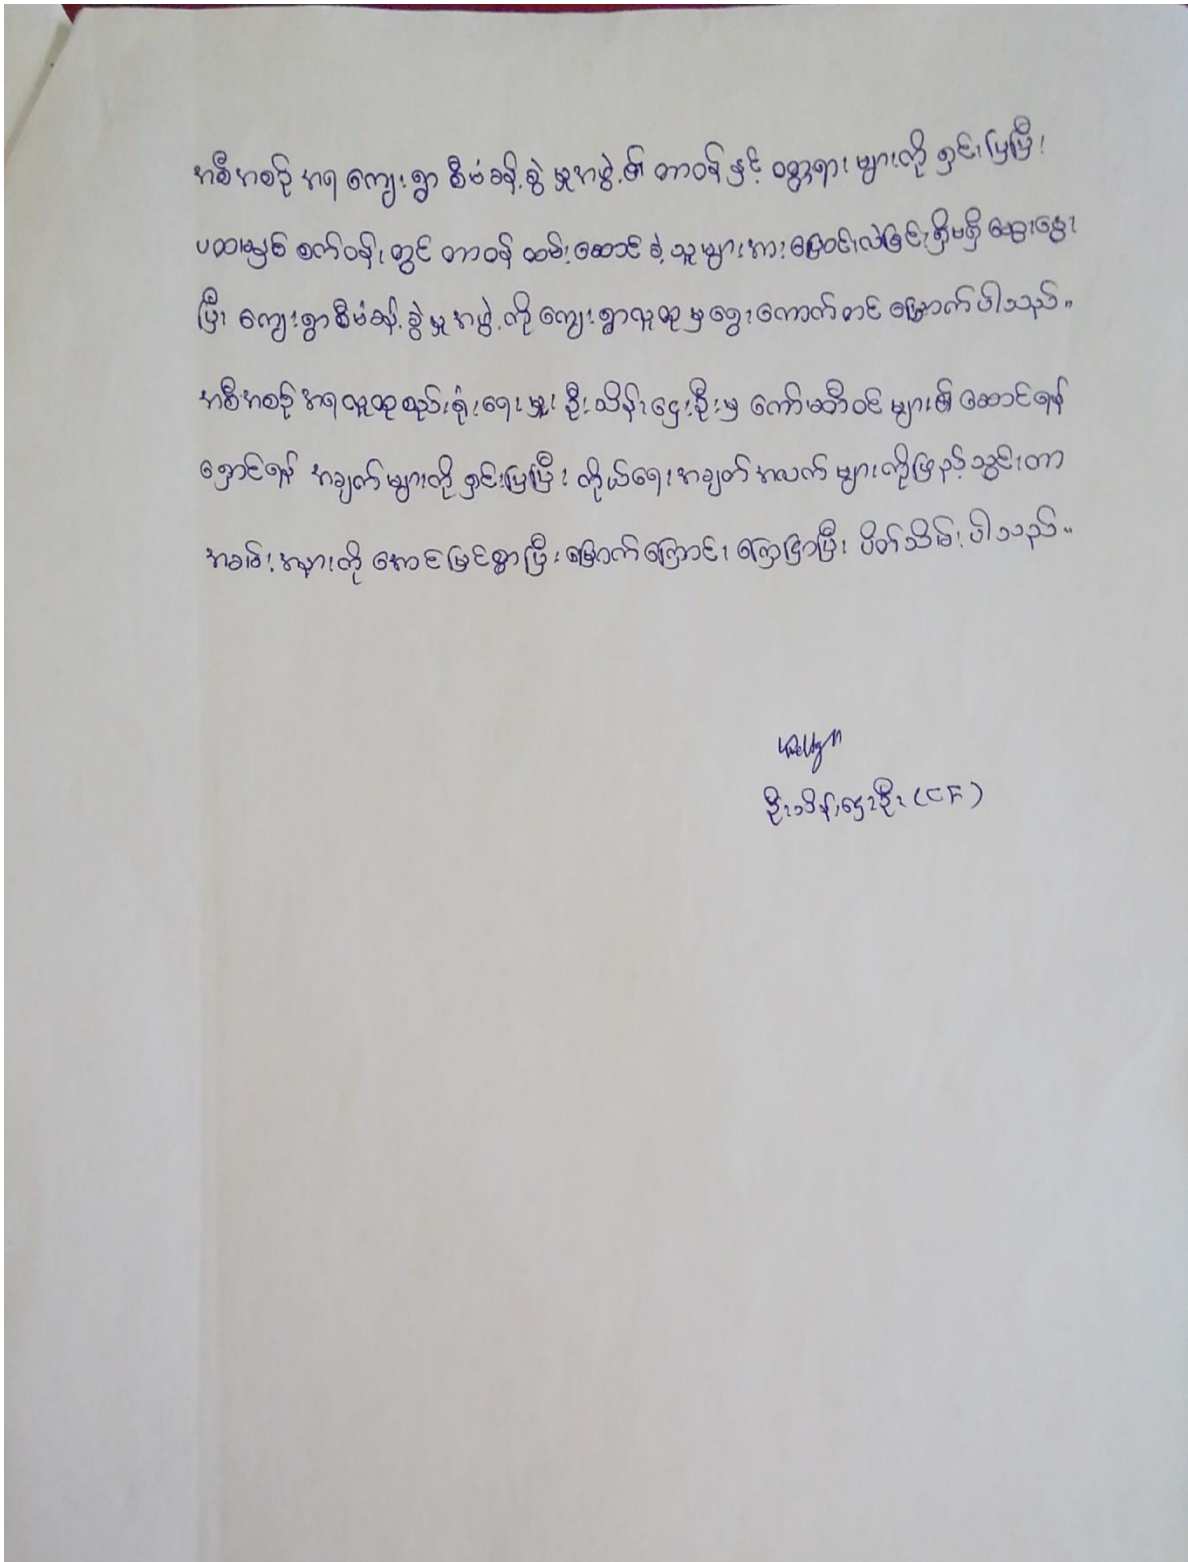 အစီအစဉ် အရ ကျေးရွာ စီမံခန့်ခွဲမှုအဖွဲ့၏ တာဝန်နှင့် ဝတ္တရားများကို ရှင်းပြပြီး
ပထမနှစ် စက်ဝန်းတွင် တာဝန် ထမ်းဆောင်ခဲ့သူများအား ပြောင်းလဲခြင်းရှိမရှိ ဆွေးနွေး
ပြီး ကျေးရွာစီမံခန့်ခွဲမှုအဖွဲ့ကို ကျေးရွာလူထုမှ ရွေးကောက်တင်မြှောက်ပါသည်။
အစီအစဉ် အရ လူထုစည်းရုံးရေးမှူး ဦးသိန်းဌေးဦးမှ ကော်မတီဝင်များ၏ ဆောင်ရန်
ရှောင်ရန် အချက်များကို ရှင်းပြပြီး ကိုယ်ရေးအချက်အလက်များကိုဖြည့်သွင်းကာ
အခမ်းအနားကို အောင်မြင်စွာပြီးမြောက်ကြောင်း ကြေငြာပြီး ပိတ်သိမ်းပါသည်။
ဦးသိန်းဌေးဦး (CF)